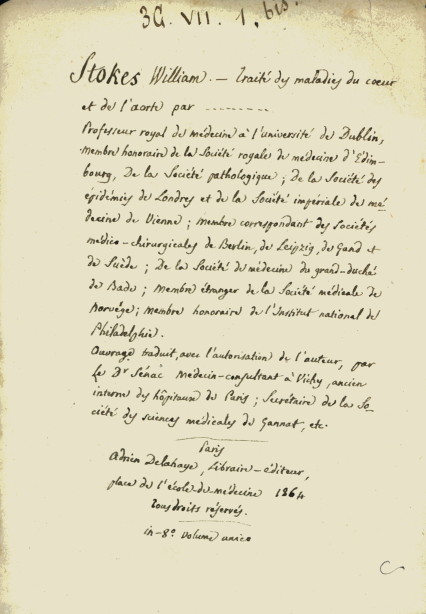 3G. VII. 1. bis.
Stokes William. — Traité des maladies du cœur
et de l'aorte par ---------
Professeur royal de médecine à l'université de Dublin,
membre honoraire de la Société royale de médecine d'Edim-
bourg, De la Société pathologique ; De la Société des
épidémies de Londres et de la Société impériale de mé-
decine de Vienne ; membre correspondant des Sociétés
médico-chirurgicales de Berlin, de Leipzig, de Gand et
de Suède ; De la Société de médecine du grand-duché
de Bade ; membre étranger de la Société médicale de
Norvége ; membre honoraire de l'Institut national de
Philadelphie.
Ouvrage traduit, avec l'autorisation de l'auteur, par
le Dr Sénac médecin-consultant à Vichy, ancien
interne des hôpitaux de Paris ; Secrétaire de la So-
ciété des sciences médicales de Gannat, etc.
Paris
Adrien Delahaye, Libraire-éditeur,
place de l'école de médecine 1864
Tous droits réservés.
in-8º volume unico